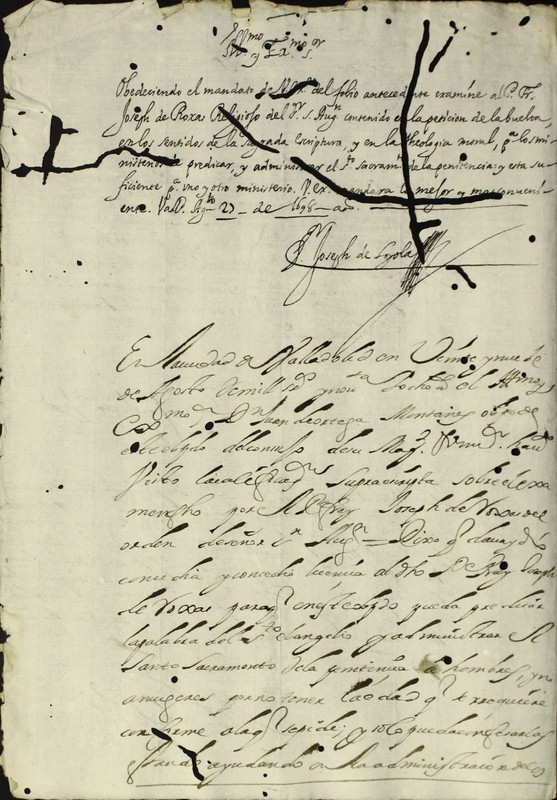 Ill.mo y Ex.mo S.r
Obedeciendo el mandato de V. Ex.a del folio antecedente examine al P. Fr.
Joseph de Roxas Religioso del S.r S. Aug.n contenido en la peticion de la buelta,
en los sentidos de la sagrada Escriptura, y en la theologia moral, p.a los mi-
nisterios de predicar, y administrar el s.to sacram.to de la penitencia: y esta su-
ficiente p.a uno y otro ministerio. V. Ex.a mandara lo mejor y mas conueni-
ente. Vall.d Ag.to 27 de 1698 as.
Joseph de Loyola
En la ciudad de Valladolid en Veinte y nueve
de Agosto de mill y nou.ta y ocho a.s el Ill.mo y
Ex.mo S.r D.n Juan de ortega Montañes obispo de
este obispado del consejo de su Mag.d
Visto la calificaz.on supraescripta sobre el exa
men fho por el P. fray Joseph de Roxas del
orden de señor S.n Aug.n = Dixo q daua y d.o
concedia y concedio licencia al dho P. fray Joseph
de Roxas para q en este obpdo pueda predicar
la palabra del s.to ebangelio y administrar el
Santo Sacramento de la penitencia a hombres, y no
a mugeres por no tener la edad q se requiere
conforme a la q se pide; y solo pueda confesarlas
estando ayudando a la administracion de